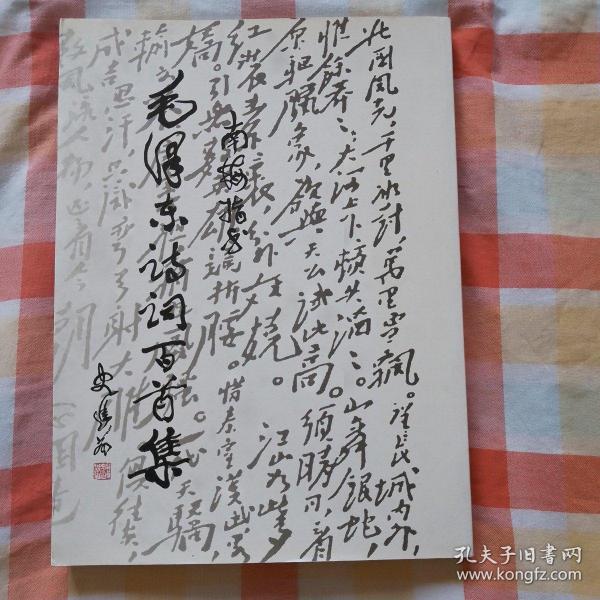 北国风光,千里冰封,万里雪飘。望长城内外,
惟馀莽ミ,大河上下,顿失滔ミ。山舞银蛇,
原驰腊象,欲与天公试比高。须晴日,看
红装素裹,分外妖娆。江山如此多
娇。引无数英雄竞折腰。惜秦皇汉武,略
输文 天骄,
成吉思汗,只识弯弓射大雕。俱往矣,
数风流人物,还看今朝
指书
毛泽东诗词百首集
史
孔夫子旧书网
www.kongfz.com